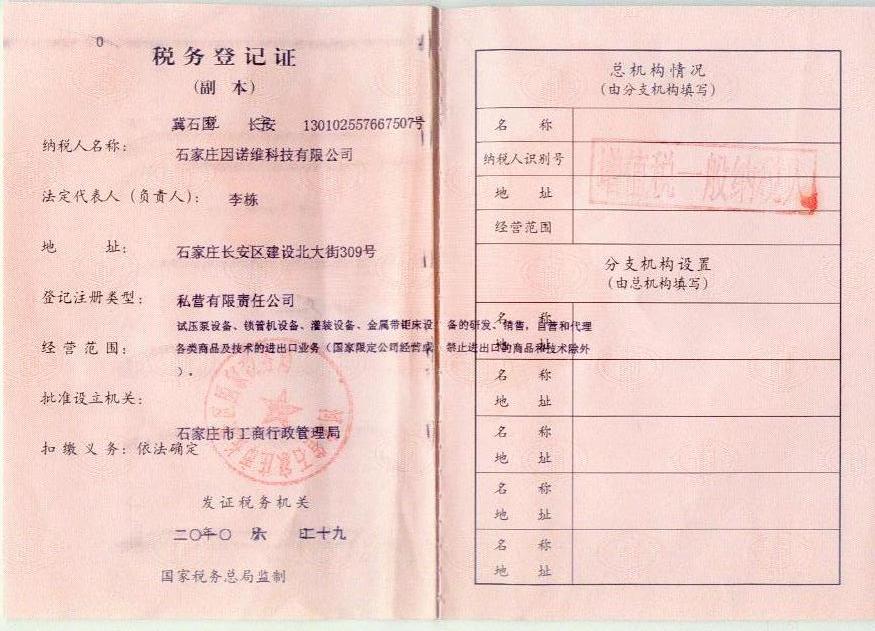 税务登记证
(副 本)
冀石国税 长安 130102557667507号
纳税人名称: 石家庄因诺维科技有限公司
法定代表人(负责人): 李栋
地 址: 石家庄长安区建设北大街309号
登记注册类型: 私营有限责任公司
经营范围: 试压泵设备、锁管机设备、灌装设备、金属带钜床设 备的研发、销售,自营和代理
各类商品及技术的进出口业务(国家限定公司经营或 禁止进出口的商品和技术除外
)。
批准设立机关:
石家庄市工商行政管理局
扣缴义务: 依法确定
发证税务机关
二〇
国家税务总局监制
总机构情况
(由分支机构填写)
名 称
纳税人识别号
地 址
经营范围
增值税一般纳税人
分支机构设置
(由总机构填写)
名 称
地 址
名 称
地 址
名 称
地 址
名 称
地 址
名 称
地 址